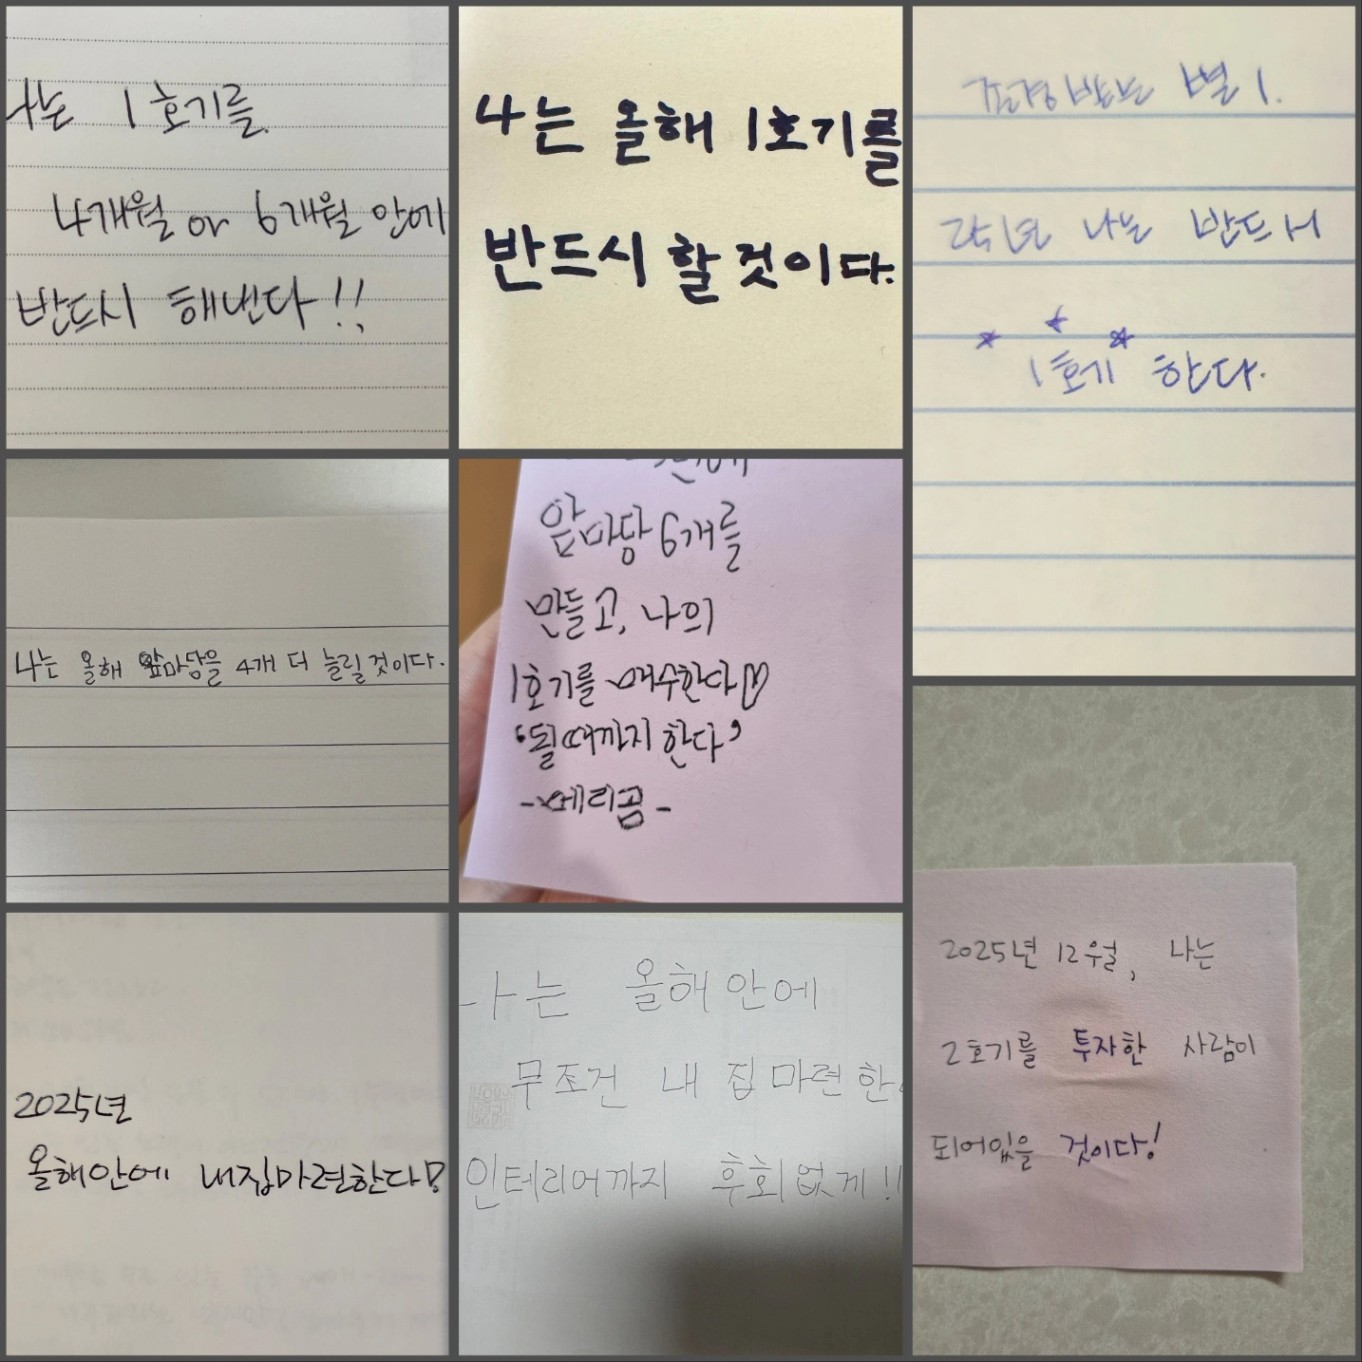 나는 1호기를
4개월 or 6개월 안에
반드시 해낸다!!
나는 올해 1호기를
반드시 할 것이다.
나는 반드시
1호기 한다.
나는 올해 앞마당을 4개 더 늘릴 것이다.
앞마당 6개를
만들고, 나의
1호기를 매수한다♡
'될때까지 한다'
2025년 12월, 나는
2호기를 투자한 사람이
되어있을 것이다!
2025년
올해안에 내집마련한다!
나는 올해 안에
무조건 내 집 마련 한
인테리어까지 후회없게!!